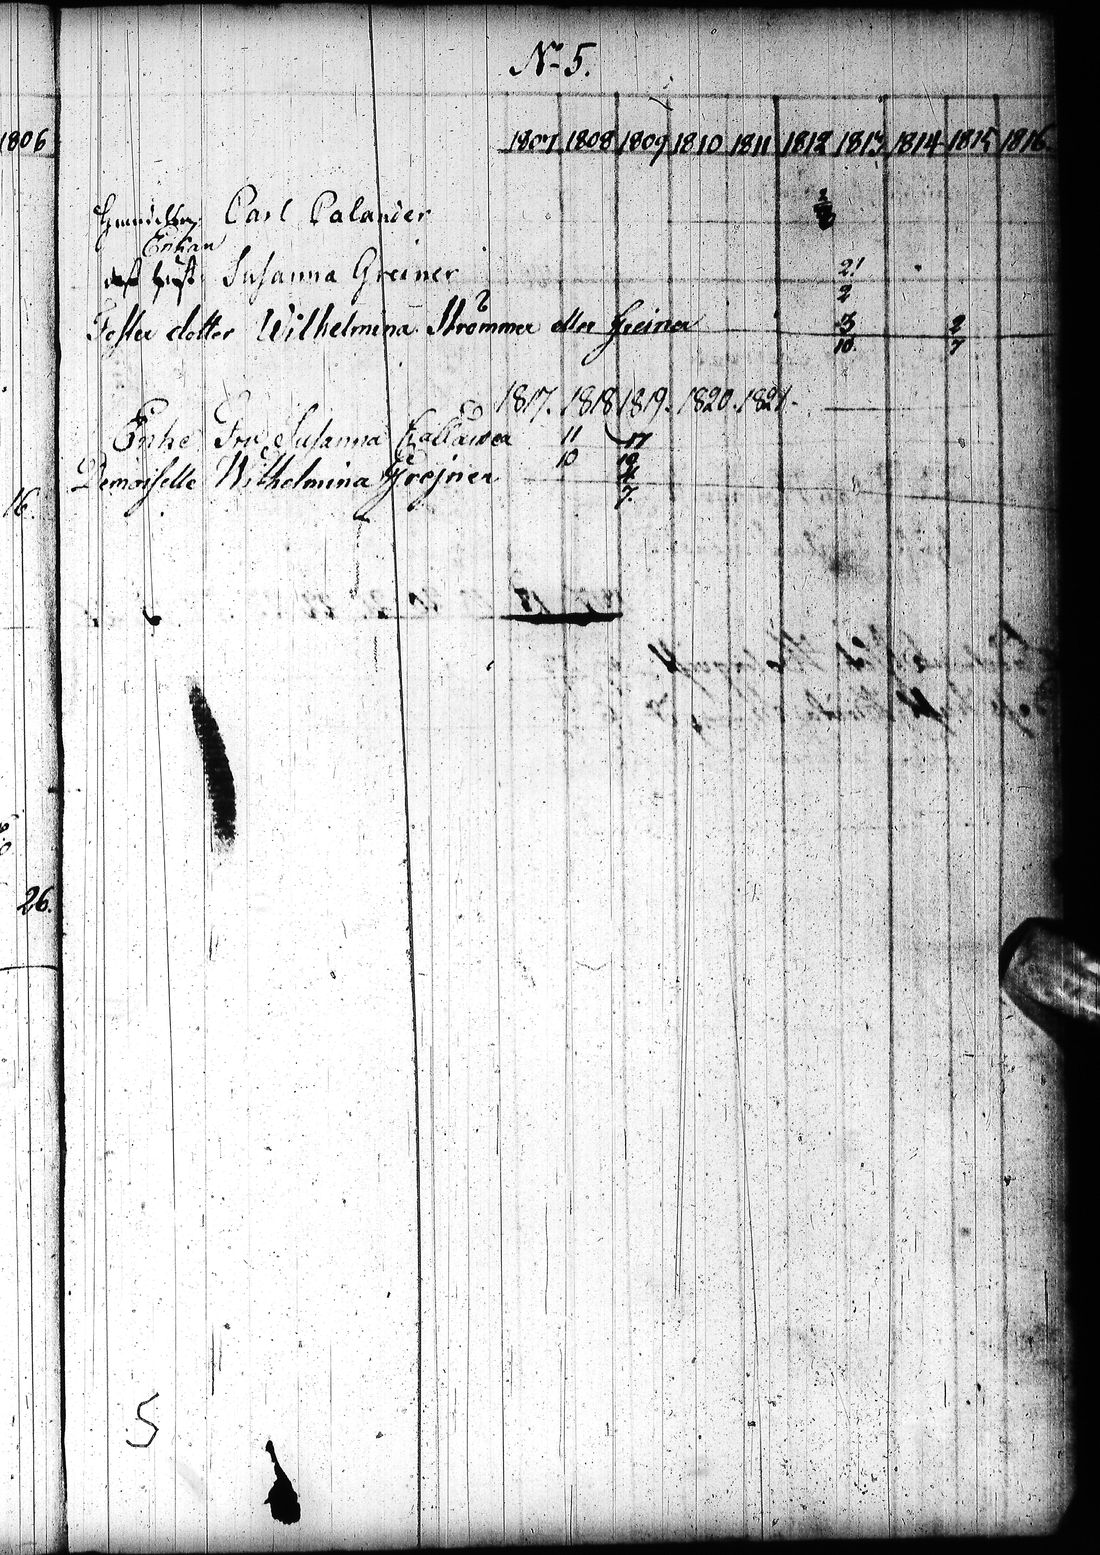 No 5.
1806 1807 1808 1809 1810 1811 1812 1813 1814 1815 1816.
Carl Palander
Enkan
Susanna Greiner 21
2
Foster dotter Wilhelmina Strömmer eller Greiner 3 2
10. 7
1817. 1818 1819. 1820. 1821.
Enke Fru Susanna Pallander 11 17
10 10
Demoiselle Wilhelmina Grejner 4
7.
16.
26.
5